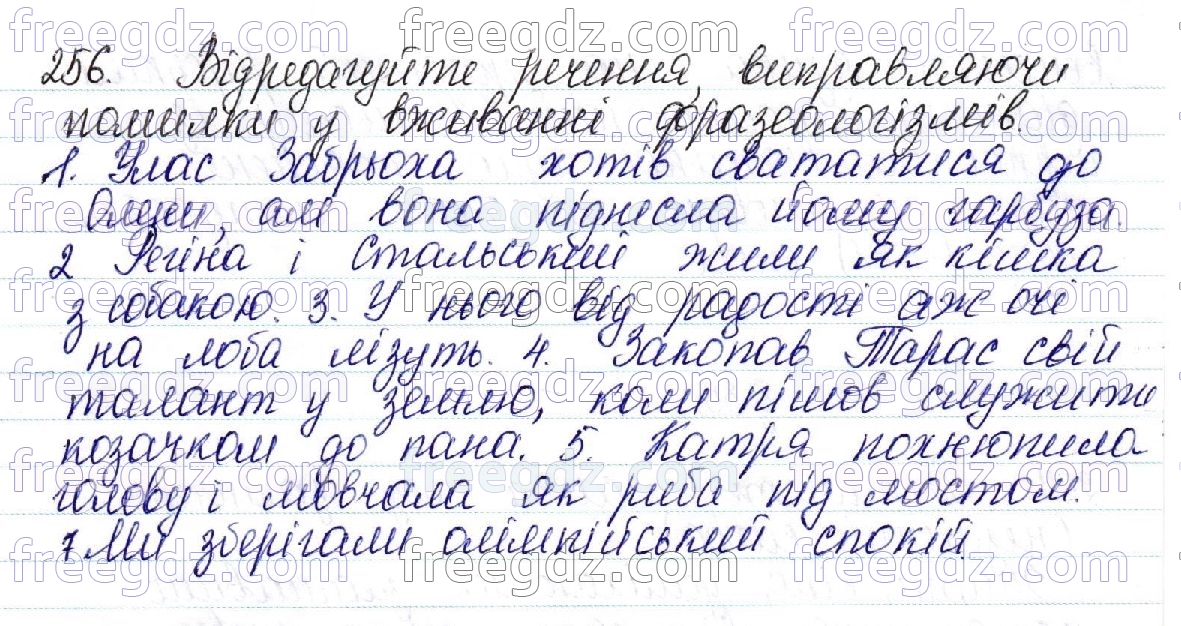 256. Відредагуйте речення, виправляючи
помилки у вживанні фразеологізмів.
1. Улас Забрьоха хотів свататися до
Олени, алі вона піднесла йому гарбуза.
2 Регіна і Стальський жили як кішка
з собакою. 3. У нього від радості аж очі
на лоба лізуть. 4. Закопав Тарас свій
талант у землю, коли пішов служити
козачком до пана. 5. Катря похнюпила
голову і мовчала як риба під мостом.
7 Ми зберігали олімпійський спокій.
freegdz.com